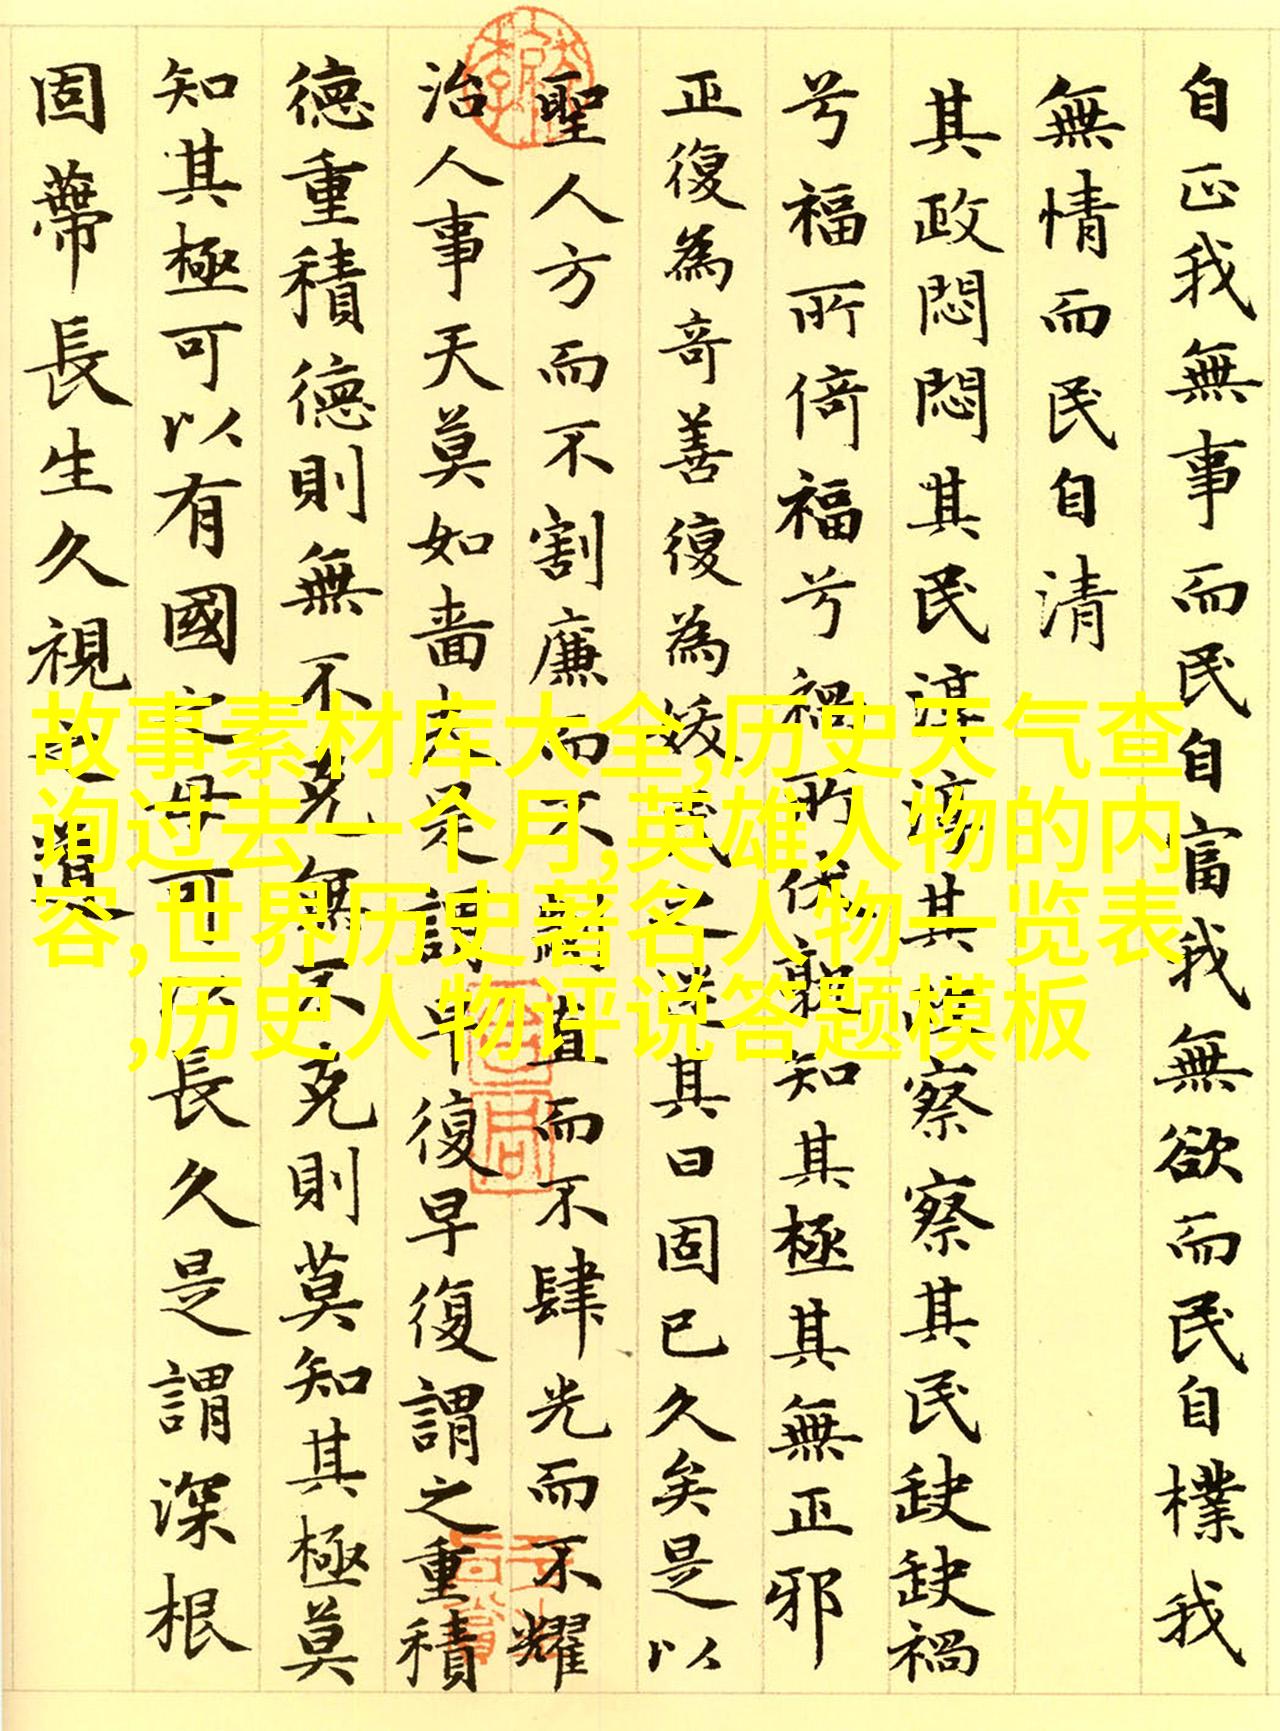 自正我無事而民自富我無欲而民自樸我
無情而民自清
其政悶悶其民淳淳其政察察其民缺缺禍
兮福所倚福兮禍所伏孰知其極其無正邪
正復為奇善復為妖民之迷其日固已久矣是以
聖人方而不割廉而不劌直而不肆光而不耀
治人事天莫如嗇夫是謂早復早復謂之重積
德重積德則無不克無不克則莫知其極莫
知其極可以有國之母可以長久是謂深根
固蔕長生久視之道
故事素材库大全,历史天气查
询过去一个月,英雄人物的内
容,世界历史著名人物一览表
,历史人物评说答题模板